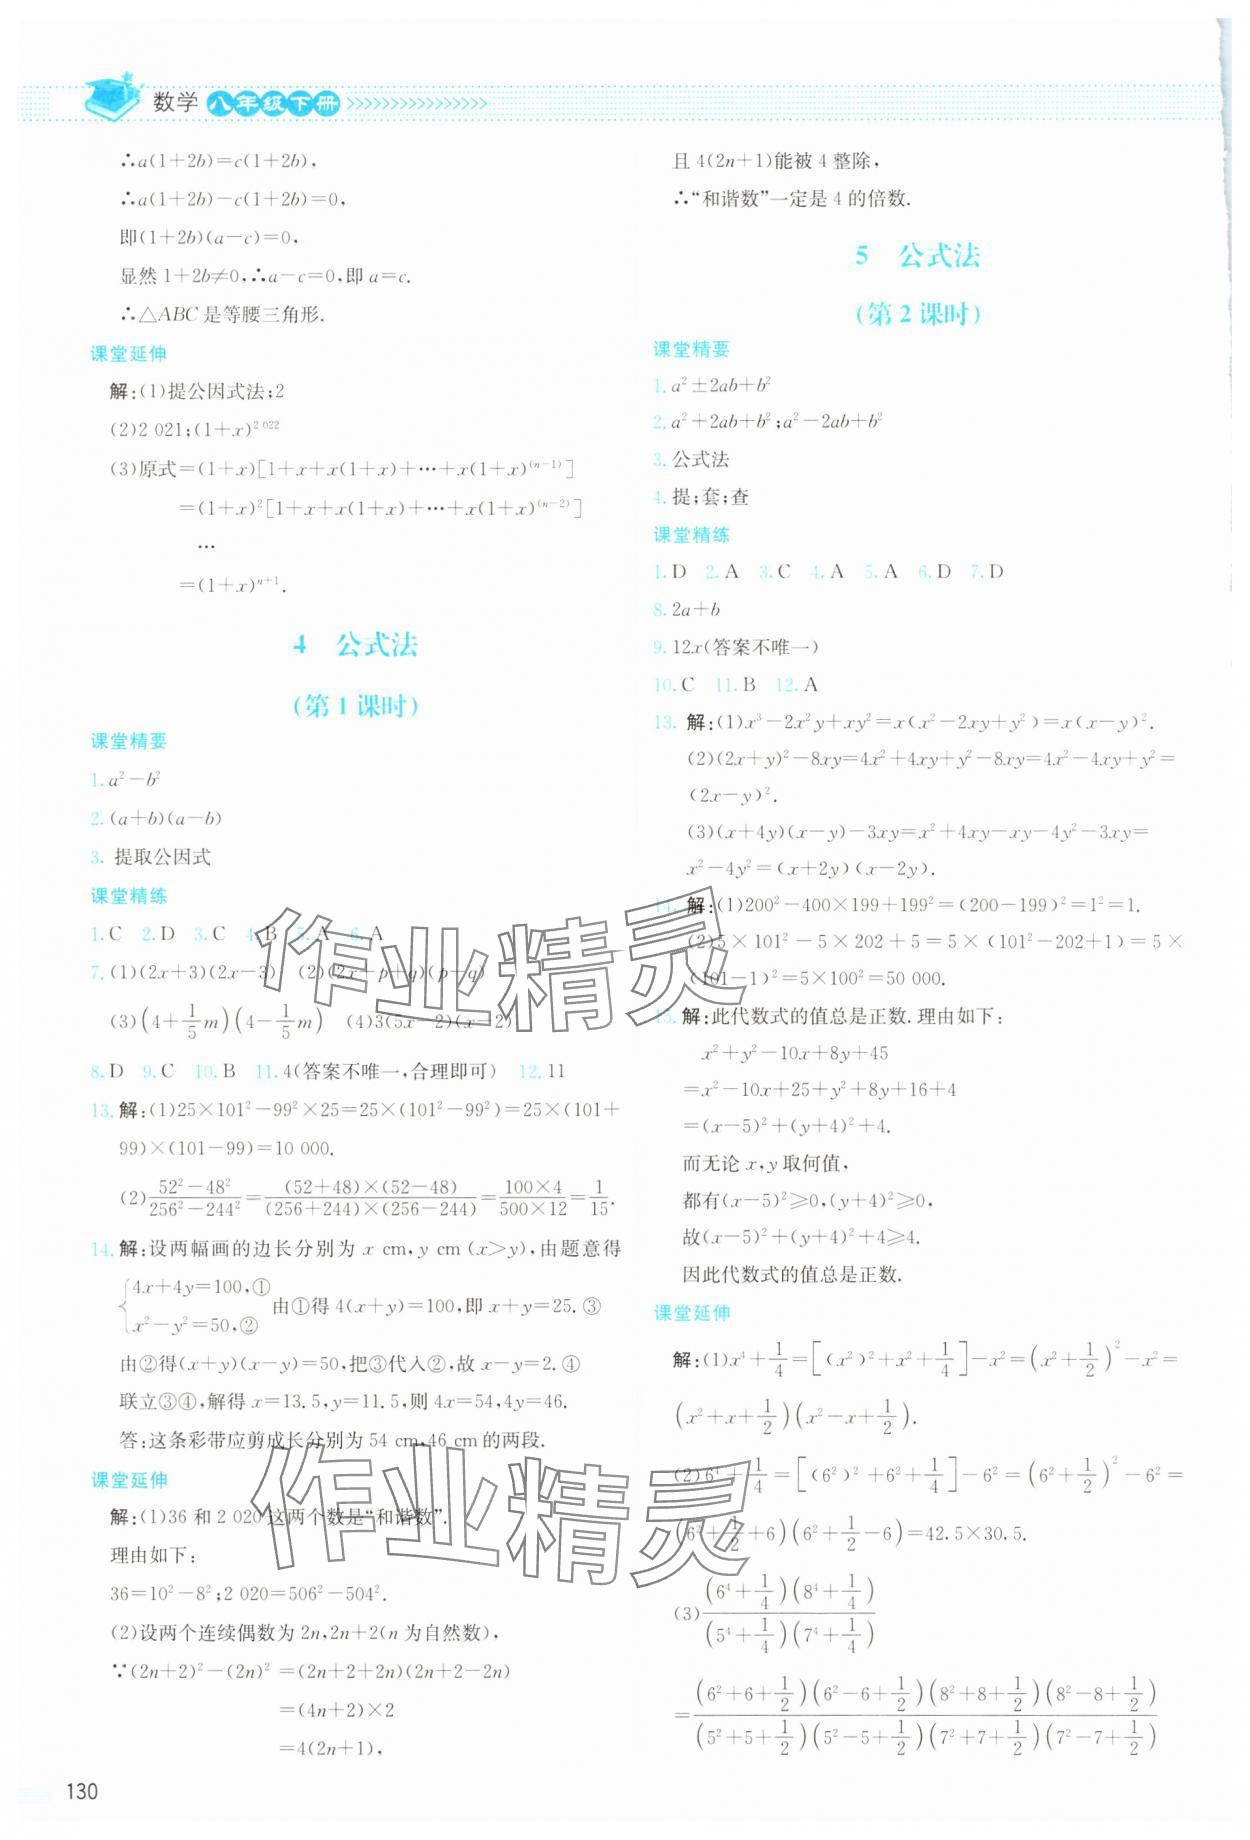 数学 八年级下册
∴a(1+2b)=c(1+2b),
∴a(1+2b)-c(1+2b)=0,
即(1+2b)(a-c)=0,
显然 1+2b≠0,∴a-c=0,即 a=c.
∴△ABC 是等腰三角形.
课堂延伸
解:(1)提公因式法;2
(2)2 021;(1+x)^{2 022}
(3)原式=(1+x)[1+x+x(1+x)+…+x(1+x)^{(n-1)}]
=(1+x)²[1+x+x(1+x)+…+x(1+x)^{(n-2)}]
…
=(1+x)^{n+1}.
4 公式法
(第 1 课时)
课堂精要
1. a²-b²
2. (a+b)(a-b)
3. 提取公因式
课堂精练
1. C 2. D 3. C 4. B 5. A 6. A
7. (1)(2x+3)(2x-3) (2)(2x+p+q)(p-q)
(3)(4+1/5m)(4-1/5m) (4)3(5x-2)(x-2)
8. D 9. C 10. B 11. 4(答案不唯一,合理即可) 12. 11
13. 解:(1)25×101²-99²×25=25×(101²-99²)=25×(101+
99)×(101-99)=10 000.
(2)(52²-48²)/(256²-244²)=((52+48)×(52-48))/((256+244)×(256-244))=(100×4)/(500×12)=1/15.
14. 解:设两幅画的边长分别为 x cm,y cm (x>y),由题意得
{4x+4y=100,① x²-y²=50,② 由①得 4(x+y)=100,即 x+y=25. ③
由②得(x+y)(x-y)=50,把③代入②,故 x-y=2. ④
联立③④,解得 x=13.5,y=11.5,则 4x=54,4y=46.
答:这条彩带应剪成长分别为 54 cm,46 cm 的两段.
课堂延伸
解:(1)36 和 2 020 这两个数是“和谐数”.
理由如下:
36=10²-8²;2 020=506²-504².
(2)设两个连续偶数为 2n,2n+2(n 为自然数),
∵(2n+2)²-(2n)² =(2n+2+2n)(2n+2-2n)
=(4n+2)×2
=4(2n+1),
130
且 4(2n+1)能被 4 整除,
∴“和谐数”一定是 4 的倍数.
5 公式法
(第 2 课时)
课堂精要
1. a²±2ab+b²
2. a²+2ab+b²;a²-2ab+b²
3. 公式法
4. 提;套;查
课堂精练
1. D 2. A 3. C 4. A 5. A 6. D 7. D
8. 2a+b
9. 12x(答案不唯一)
10. C 11. B 12. A
13. 解:(1)x³-2x²y+xy²=x(x²-2xy+y²)=x(x-y)².
(2)(2x+y)²-8xy=4x²+4xy+y²-8xy=4x²-4xy+y²=
(2x-y)².
(3)(x+4y)(x-y)-3xy=x²+4xy-xy-4y²-3xy=
x²-4y²=(x+2y)(x-2y).
14. 解:(1)200²-400×199+199²=(200-199)²=1²=1.
(2)5×101²-5×202+5=5×(101²-202+1)=5×
(101-1)²=5×100²=50 000.
15. 解:此代数式的值总是正数.理由如下:
x²+y²-10x+8y+45
=x²-10x+25+y²+8y+16+4
=(x-5)²+(y+4)²+4.
而无论 x,y 取何值,
都有(x-5)²≥0,(y+4)²≥0,
故(x-5)²+(y+4)²+4≥4.
因此代数式的值总是正数.
课堂延伸
解:(1)x⁴+1/4=[(x²)²+x²+1/4]-x²=(x²+1/2)²-x²=
(x²+x+1/2)(x²-x+1/2).
(2)6⁴+1/4=[(6²)²+6²+1/4]-6²=(6²+1/2)²-6²=
(6²+1/2+6)(6²+1/2-6)=42.5×30.5.
(3)((6⁴+1/4)(8⁴+1/4))/((5⁴+1/4)(7⁴+1/4))
=((6²+6+1/2)(6²-6+1/2)(8²+8+1/2)(8²-8+1/2))/((5²+5+1/2)(5²-5+1/2)(7²+7+1/2)(7²-7+1/2))
作业精灵
作业精灵